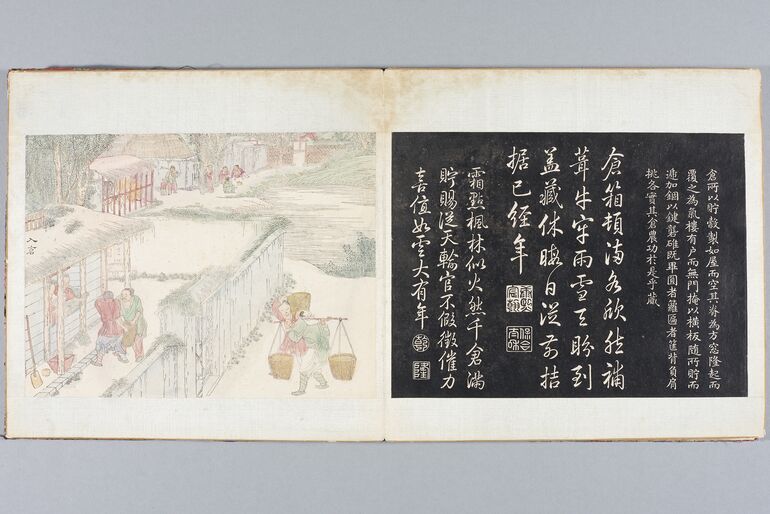 倉所以貯穀製如屋而空其脊為方窓隆起而
覆之為氣樓有戶而無門掩以橫板隨所貯而
遞加錮以鍵礱碓既畢圓者籮匾者筐背負肩
挑各實其倉農功於是乎藏
倉箱頓滿各欣然補
葺牛牢雨雪天盼到
蓋藏休暇日從前拮
据已經年
康熙宸翰
保合太和
霜點楓林似火然千倉滿
貯賜從天輸官不假徵催力
喜值如雲大有年
乾
隆
入倉